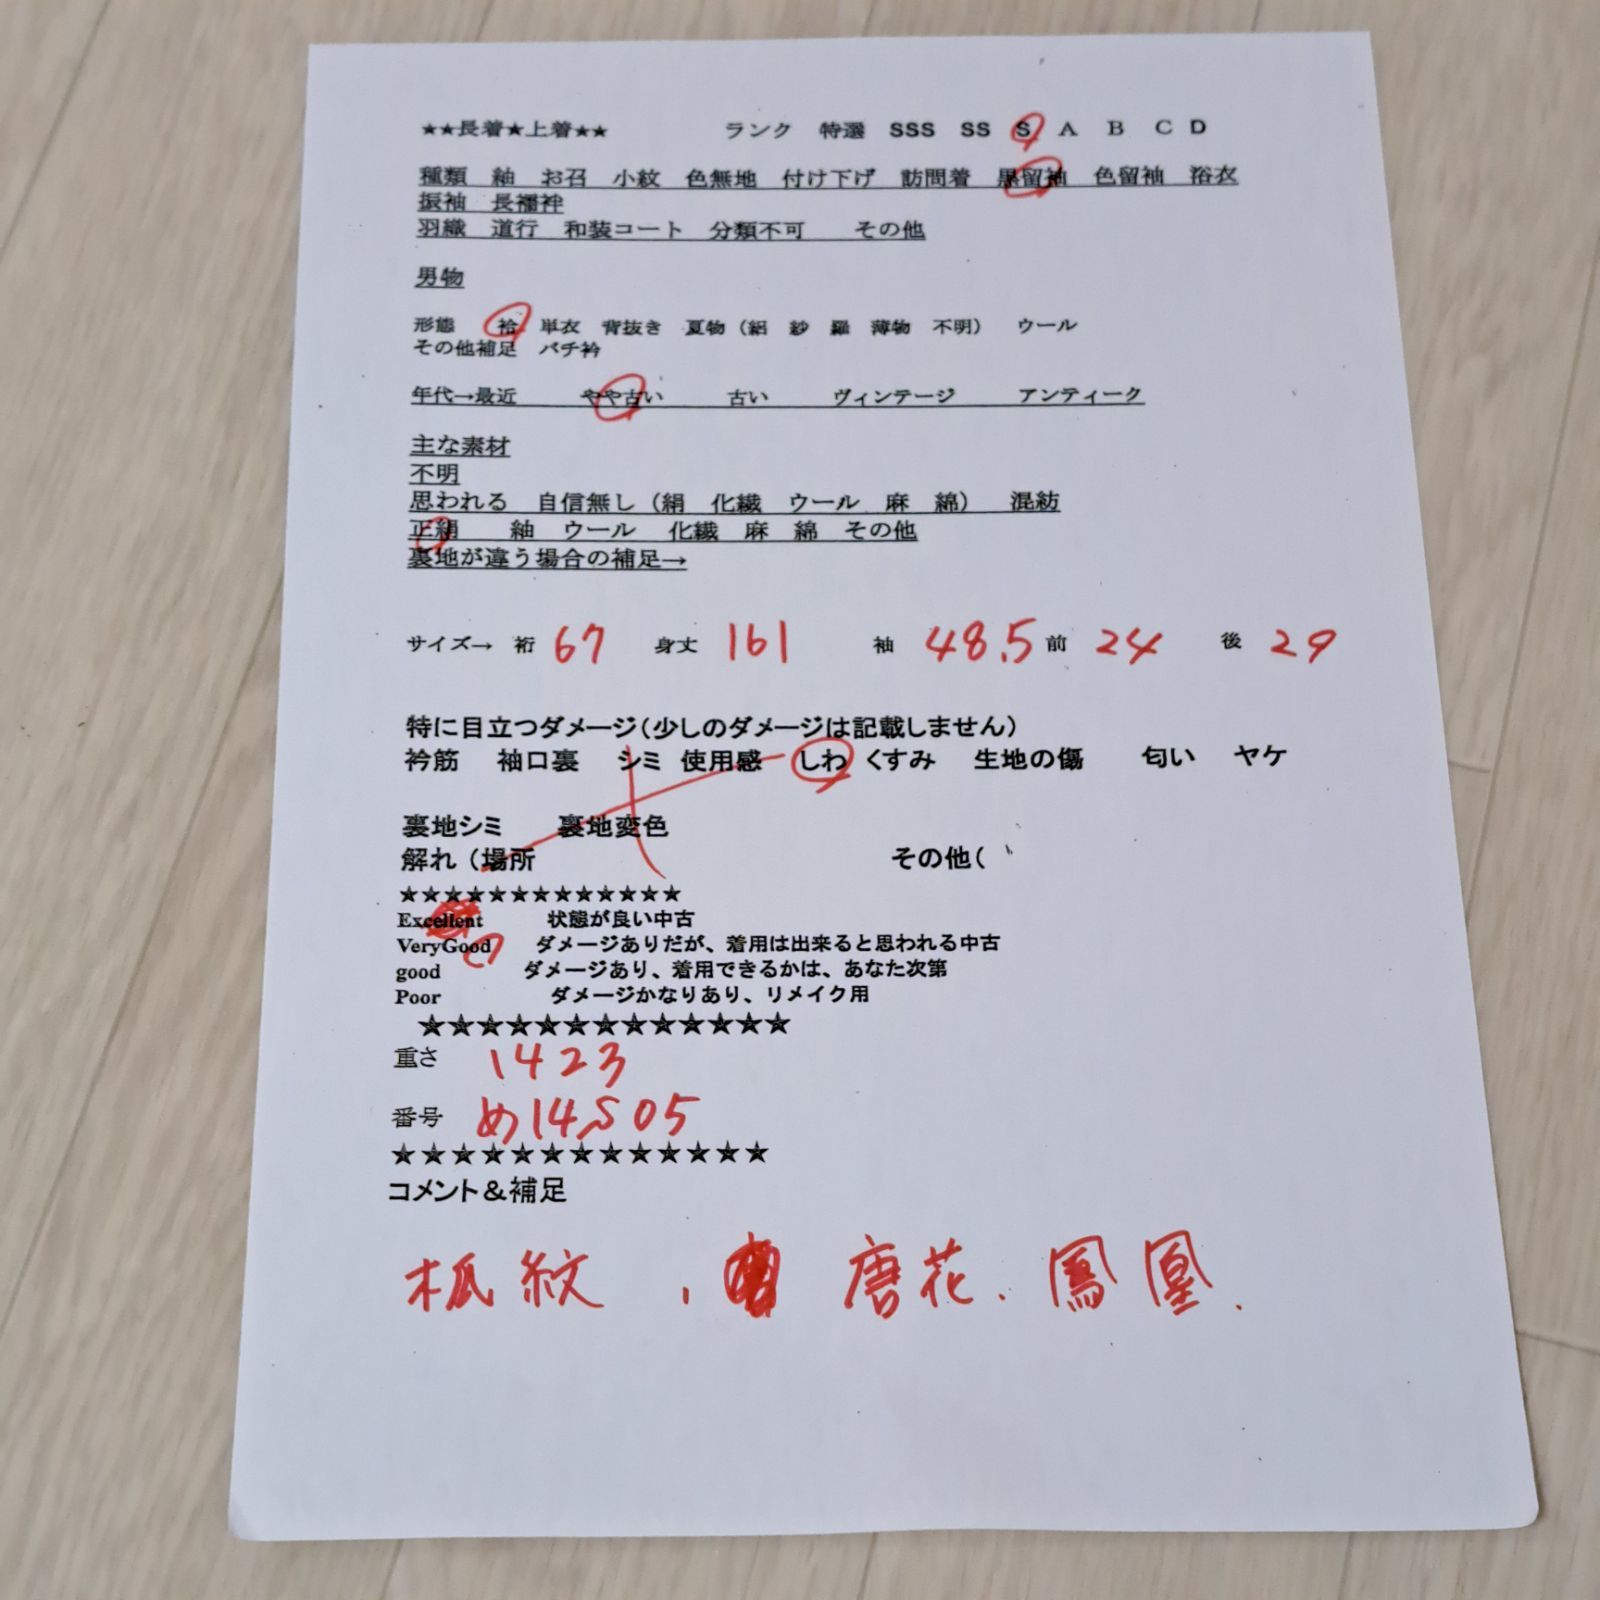 ★★長着★上着★★ ランク 特選 SSS SS S A B C D
種類 紬 お召 小紋 色無地 付け下げ 訪問着 黒留袖 色留袖 浴衣
振袖 長襦袢
羽織 道行 和装コート 分類不可 その他
男物
形態 袷 単衣 背抜き 夏物（絽 紗 羅 薄物 不明） ウール
その他補足 バチ衿
年代→最近 やや古い 古い ヴィンテージ アンティーク
主な素材
不明
思われる 自信無し（絹 化繊 ウール 麻 綿） 混紡
正絹 紬 ウール 化繊 麻 綿 その他
裏地が違う場合の補足→
サイズ→ 裄 67 身丈 161 袖 48.5 前 24 後 29
特に目立つダメージ（少しのダメージは記載しません）
衿筋 袖口裏 シミ 使用感 しわ くすみ 生地の傷 匂い ヤケ
裏地シミ 裏地変色
解れ（場所 その他（
★★★★★★★★★★★★★
Excellent 状態が良い中古
VeryGood ダメージありだが、着用は出来ると思われる中古
good ダメージあり、着用できるかは、あなた次第
Poor ダメージかなりあり、リメイク用
★★★★★★★★★★★★★
重さ 1423
番号 め14S05
★★★★★★★★★★★★★
コメント＆補足
紋、唐花、鳳凰.